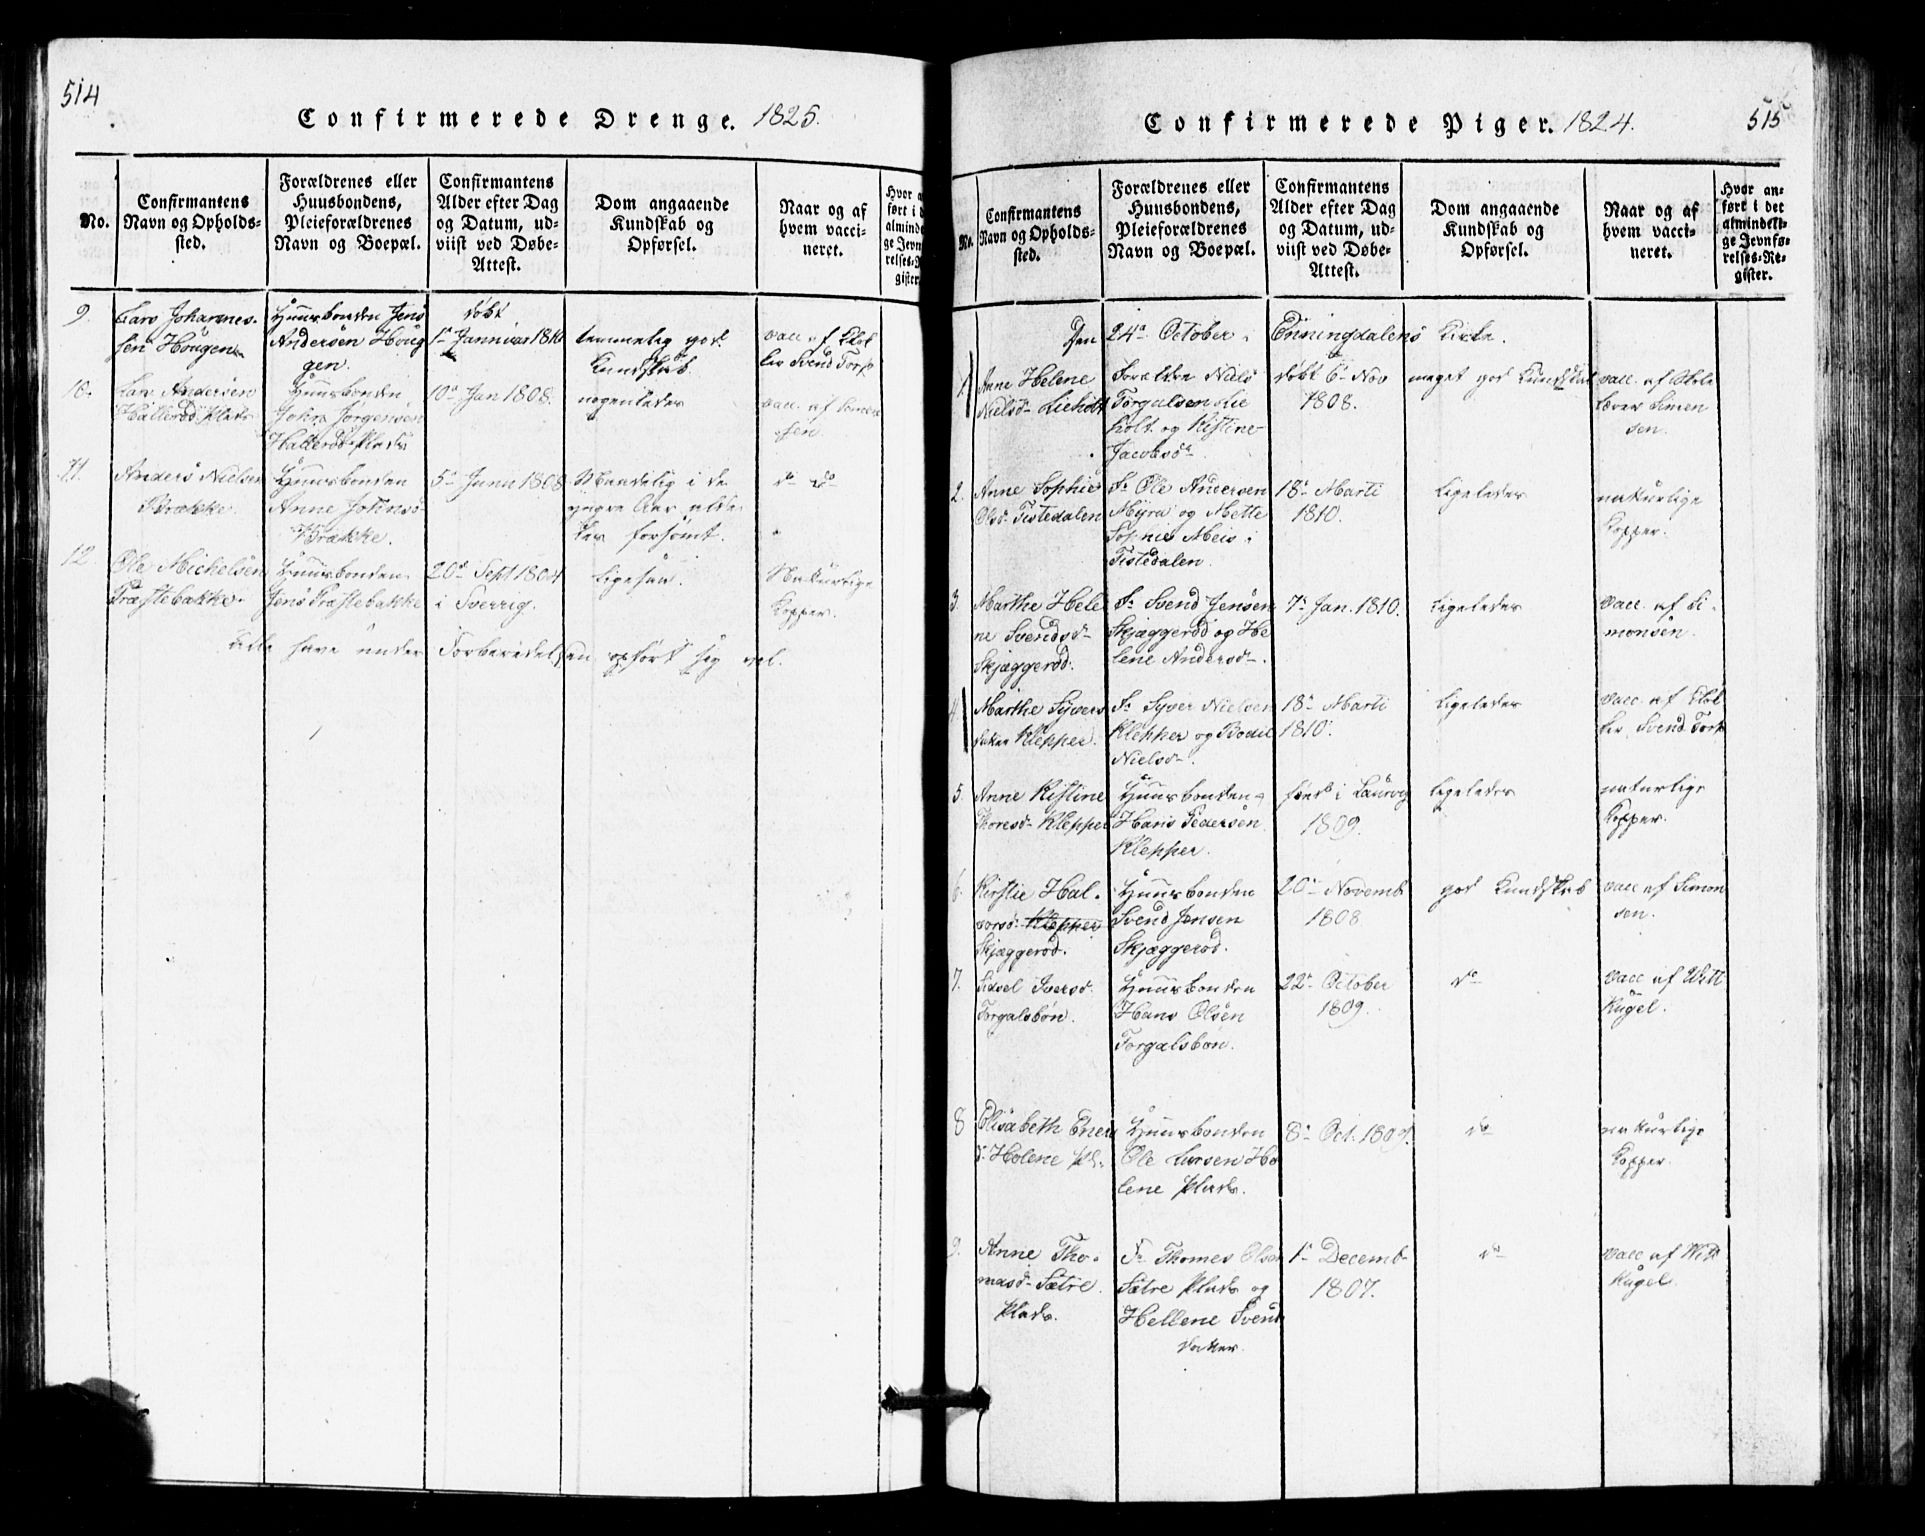 514
Confirmerede Drenge. 1825.
No.
Confirmantens
Navn og Opholds-
sted.
Forældrenes eller
Huusbondens,
Pleieforældrenes
Navn og Boepæl.
Confirmantens
Alder efter Dag
og Datum, ud-
viist ved Døbe-
Attest.
Dom angaaende
Kundskab og
Opførsel.
Naar og af
hvem vacci-
neret.
9.
Lars Johannes-
sen Hougen
Huusbonden Jens
Andersen Houg
gen.
døbt
1 Januar 1810
temmelig god
Kundskab
vacc. af Skol
ler Svend Torp
10.
Lars Andersen
Hallerød Plads
Huusbonden
John Jørgensen
Hallerød Plads
10 Jan 1808.
nogenledes
vacc. af Simon
sen.
11.
Anders Nielsen
Brække
Huusbonden
Anne Johnsd
Brække.
5 Juni 1808
Maadelig i de
yngre Aar
forsømt.
do do
12
Ole Michelsen
Præstebakke.
Huusbonden
Jens Præstebakke
20 Sept 1804
i Sverrig.
ligesaa.
Naturlige
Kopper.
Alle have under Forberedelsen opført sig vel.
Confirmerede Piger. 1824.
515
No.
Confirmantens
Navn og Opholds-
sted.
Forældrenes eller
Huusbondens,
Pleieforældrenes
Navn og Boepæl.
Confirmantens
Alder efter Dag
og Datum, ud-
viist ved Døbe-
Attest.
Dom angaaende
Kundskab og
Opførsel.
Naar og af
hvem vacci-
neret.
Hvor an-
ført i det
almindeli-
ge Jevnfø-
relses-Re-
gister.
Den 24 October i Enningdalens Kirke.
1.
Anne Helene
Nielsd Lieholt
Forældre Niels
Torgalsen Lie
holt og Kistine
Jacobsd
døbt 6 Nov
1808.
meget god Kundskab
vacc. af Skole
lærer Simen
sen.
2.
Anne Sophie
Olsd Tistedalen
F. Ole Andersen
Myra og Mette
Sophie Meis i
Tistedalen.
18 Marti
1810.
ligeledes
naturlige
Kopper.
3.
Marthe Hele
ne Svendsd
Skjæggerød.
F. Svend Jensen
Skjæggerød og He
lene Andersd.
7 Jan. 1810.
ligeledes
vacc. af Si-
monsen.
4
Marthe Syvers
datter Klepper.
F. Syver Nielsen
Klepper og Bodil
Nielsd.
18 Marti
1810.
ligeledes
vacc. af Skol
ler Svend Torp
5.
Anne Kistine
Thoresd Klepper
Huusbonden
Hans Pedersen
Klepper.
født i Laurvig
1809.
ligeledes
naturlige
Kopper.
6.
Kirstie Hal-
vorsd Klepper
Skjæggerød.
Huusbonden
Svend Jensen
Skjæggerød.
20 Novemb
1808
god Kundskab
vacc af Simon
sen.
7.
Sidsel Iversd.
Torgalsbøn.
Huusbonden
Hans Olsen
Torgalsbøn.
22 October
1809.
do
vacc af Witt
Kugel.
8
Elisabeth Ener
d. Holene Pl.
Huusbonden
Ole Larsen Ho
lene Plads.
8 Oct. 1809.
do
naturlige
Kopper.
9.
Anne Tho-
masd Sætre
Plads.
F. Thomes Olsen
Sætre Plads og
Hellene Svends
datter.
1 Decemb
1807.
do
vacc af Witt
Kugel.